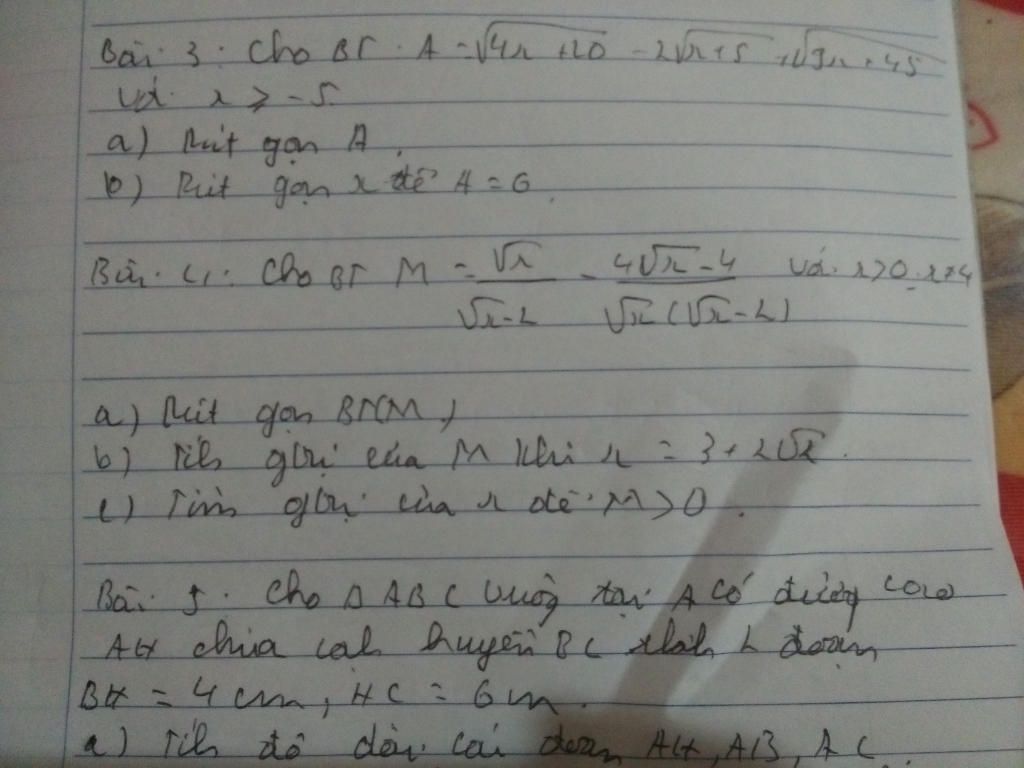 Bài 3: Cho BT A = √4x + 20 - 2√x+5 + √9x + 45
với x ≥ -5
a) Rút gọn A.
b) Rút gọn x để A = 6.
Bài 4: Cho BT M = √x / √x-2 - 4√x - 4 / √x (√x - 2) với x > 0, x ≠ 4
a) Rút gọn BT(M)
b) Tính gtrị của M khi x = 3 + 2√2.
c) Tìm gtrị của x để M > 0.
Bài 5: Cho Δ ABC vuông tại A có đường cao
AH chia cạnh huyền BC thành 2 đoạn
BH = 4 cm, HC = 6 m.
a) Tính độ dài các đoạn AH, AB, AC.